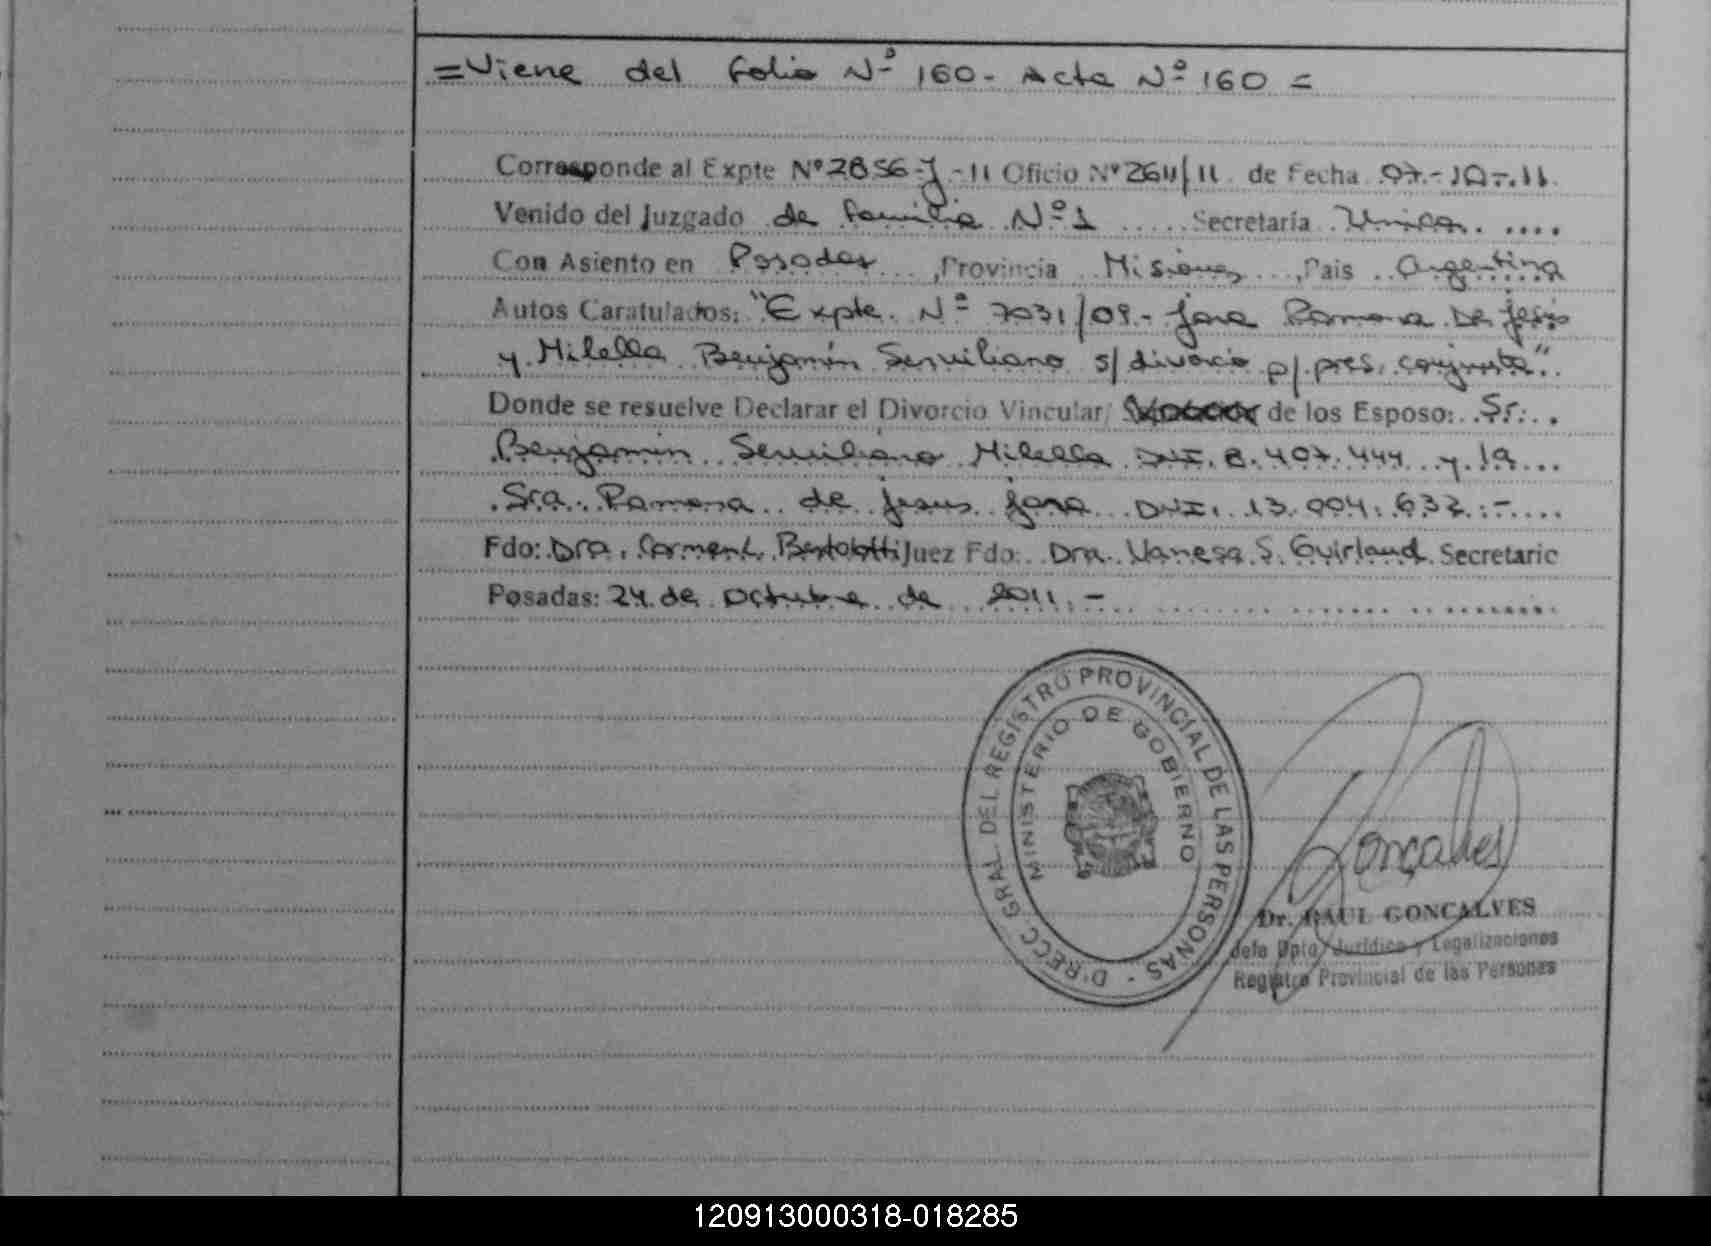 =Viene del folio Nº 160- Acta Nº 160 =
Corresponde al Expte Nº 2856-J-11 Oficio Nº 2611/11 de Fecha 07.-10-.11.
Venido del Juzgado de familia Nº 1 Secretaría Unica.
Con Asiento en Posadas, Provincia Misiones, Pais Argentina
Autos Caratulados: "Expte. Nº 7031/09.- Jara Ramona De Jesús
y Milella Benjamín Serviliano s/ divorcio p/ pres. conjunta".
Donde se resuelve Declarar el Divorcio Vincular, de los Esposo: Sr.
Benjamin Serviliano Milella DNI. 8.407.444 y la
Sra. Ramona de Jesus Jara DNI. 13.004.632.-
Fdo: Dra. Carmen L. Bertolotti Juez Fdo: Dra. Vanesa S. Guirland Secretaric
Posadas: 24 de octubre de 2011.-
D'RECC. GRAL DEL REGISTRO PROVINCIAL DE LAS PERSONAS -
MINISTERIO DE GOBIERNO
Gonçalves
Dr. RAUL GONCALVES
Jefe Dpto. Jurídico y Legalizaciones
Registro Provincial de las Personas
120913000318-018285